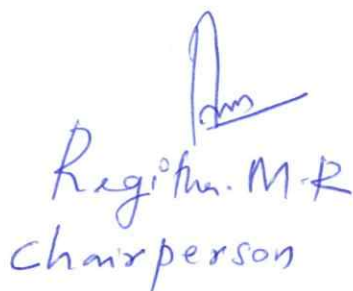 Regitha. M. R
chairperson